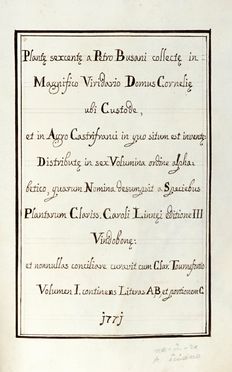 Plantę sexcentę a Petro Busani collectę in
Magnifico Viridario Domus Cornelię
ubi Custode,
et in Agro Castrifranci in quo situm est inventę
Distributę in sex Volumina ordine alpha-
betico, quarum Nomina desumpsit a Speciebus
Plantarum Clariss. Caroli Linnęi editione III
Vindobonę:
et nonnullas conciliare curavit cum Clar. Tournefortio
Volumen I. continens Literas A B et portionem C